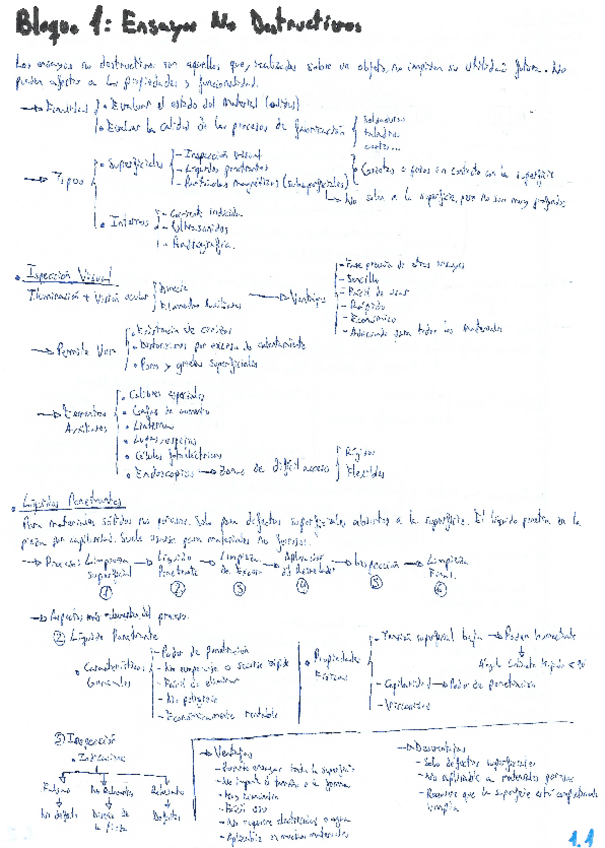 Bloque 1: Ensayos No Destructivos
Los ensayos no destructivos son aquellos que, realizados sobre un objeto, no impiden su utilidad futura. No
pueden afectar a las propiedades y funcionalidad.
• Evaluar el estado del material
• Evaluar la calidad de los procesos de fabricación
soldaduras
taladros
Tipos
• Superficiales
- Inspección visual
- Líquidos penetrantes
- Partículas magnéticas (subsuperficiales)
en contacto con la superficie
No salen a la superficie, pero no son muy profundos
• Internos
- Corriente inducida
- Ultrasonidos
- Radiografía
• Inspección Visual
Iluminación + Visión ocular
Directa
Elementos Auxiliares
Ventajas
- Fase previa de otros ensayos
- Sencillo
- Fácil de usar
- Rápido
- Económico
- Adecuado para todos los materiales
Permite Ver
• Existencia de
• Distorsiones por exceso de calentamiento
• Poros y grietas superficiales
Elementos
Auxiliares
• Calibres especiales
• Gafas de aumento
• Linternas
• Lupas, espejos
• Células fotoeléctricas
• Endoscopios → Zonas de difícil acceso
Rígidos
Flexibles
• Líquidos Penetrantes
Para materiales sólidos no porosos. Solo para defectos superficiales abiertos a la superficie. El líquido penetra en la
pieza por capilaridad. Suele usarse para materiales no férreos.
→ Proceso: Limpieza superficial → Líquido Penetrante → Limpieza de Exceso → Aplicación del Revelador → Inspección → Limpieza Final
① ② ③ ④ ⑤ ⑥
→ Aspectos más relevantes del proceso
② Líquido Penetrante
• Características Generales
- Poder de penetración
- No evaporarse o secarse rápido
- Fácil de eliminar
- No peligroso
- Económicamente rentable
• Propiedades Físicas
- Tensión superficial baja → Poder humectante
- Capilaridad → Poder de penetración
- Viscosidad
⑤ Inspección
• Indicaciones
Falsas
No Relevantes
Relevantes
No defecto
Diseño de la pieza
Defectos
→ Ventajas
- Permite ensayar toda la superficie
- No importa el tamaño o la forma
- Muy económico
- Fácil uso
- No requiere electricidad o agua
- Aplicable a muchos materiales
→ Desventajas
- Solo defectos superficiales
- No aplicable a materiales porosos
- Requiere que la superficie esté completamente
limpia
1.1